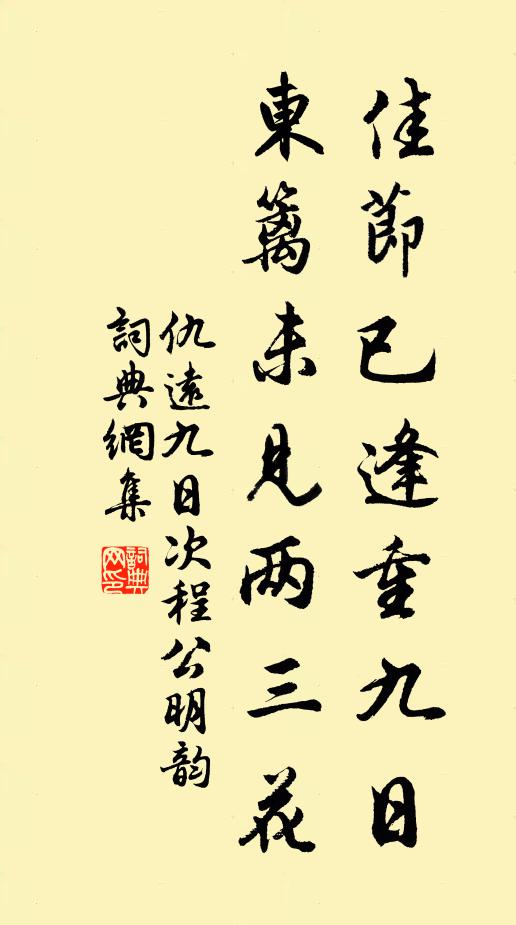 佳節已逢重九日
東籬未見两三花
仇遠九日次程公明韵
詞典網集
詞典网印